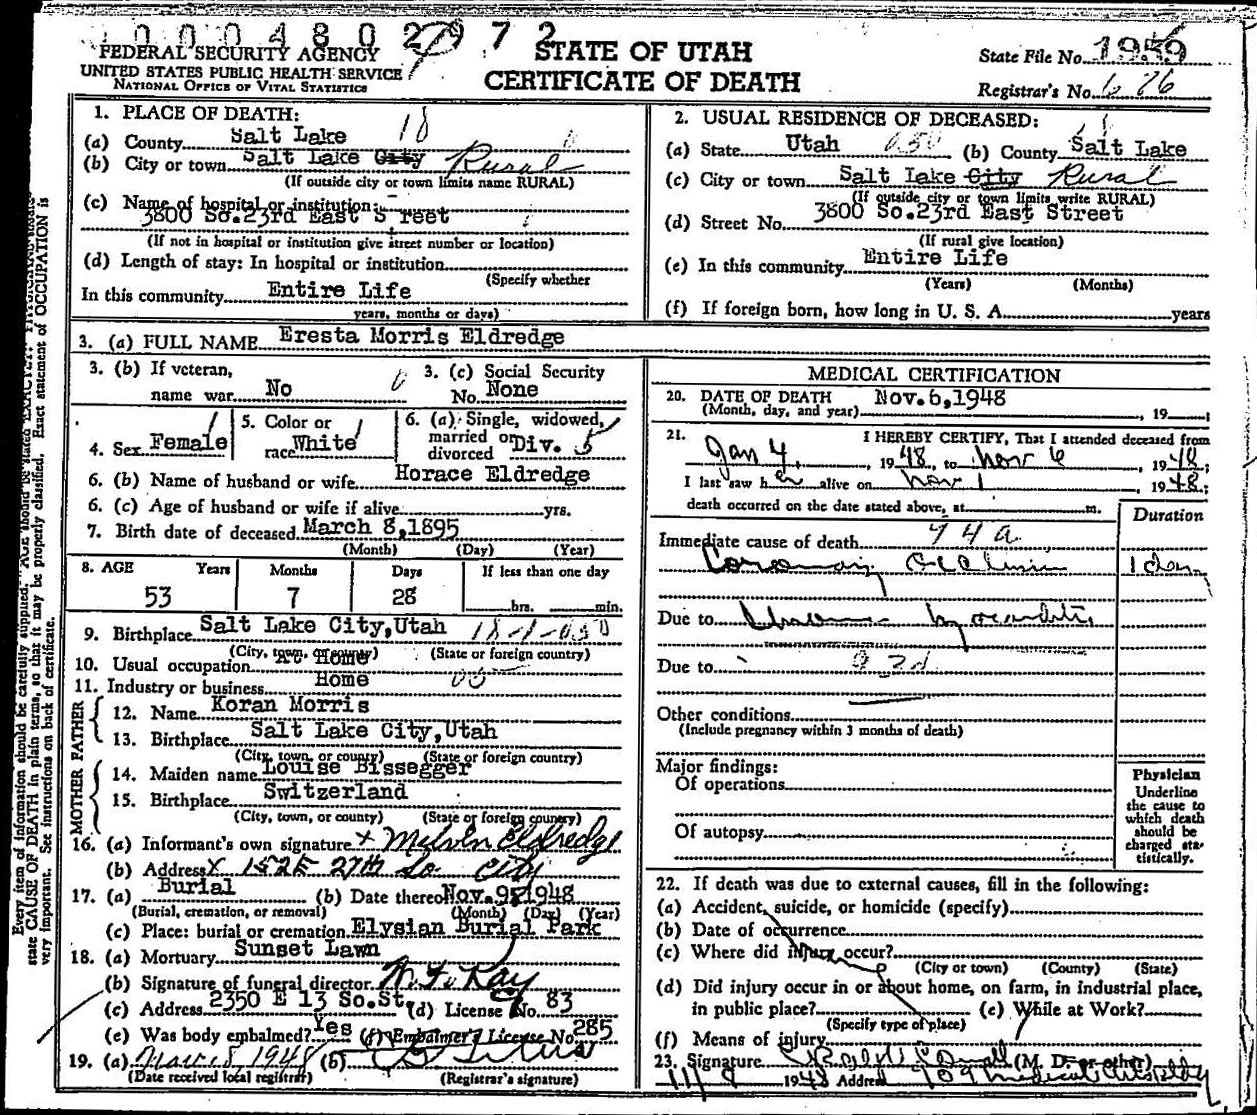 1 0 0 0 4 8 0 2 9 7 2
FEDERAL SECURITY AGENCY
UNITED STATES PUBLIC HEALTH SERVICE
NATIONAL OFFICE OF VITAL STATISTICS
STATE OF UTAH
CERTIFICATE OF DEATH
State File No. 1959
Registrar's No. 626
Every item of information should be carefully supplied. AGE should be stated EXACTLY.
state CAUSE OF DEATH in plain terms, so that it may be properly classified. Exact statement of OCCUPATION is
very important. See instructions on back of certificate.
1. PLACE OF DEATH: 18
(a) County Salt Lake
(b) City or town Salt Lake City Rural
(If outside city or town limits name RURAL)
(c) Name of hospital or institution:
3800 So.23rd East S reet
(If not in hospital or institution give street number or location)
(d) Length of stay: In hospital or institution
(Specify whether
In this community Entire Life
years, months or days)
2. USUAL RESIDENCE OF DECEASED:
(a) State Utah 050 (b) County Salt Lake
(c) City or town Salt Lake City Rural
(If outside city or town limits write RURAL)
(d) Street No. 3800 So.23rd East Street
(If rural give location)
(e) In this community Entire Life
(Years) (Months)
(f) If foreign born, how long in U. S. A. years
3. (a) FULL NAME Eresta Morris Eldredge
3. (b) If veteran,
name war No
3. (c) Social Security
No. None
4. Sex Female
5. Color or
race White
6. (a) Single, widowed,
married or
divorced Div. 5
6. (b) Name of husband or wife Horace Eldredge
6. (c) Age of husband or wife if alive yrs.
7. Birth date of deceased March 8,1895
(Month) (Day) (Year)
8. AGE Years Months Days If less than one day
53 7 28 hrs. min.
9. Birthplace Salt Lake City,Utah 18-1-050
(City, town, or county) (State or foreign country)
10. Usual occupation At Home
11. Industry or business Home
FATHER
12. Name Koran Morris
13. Birthplace Salt Lake City,Utah
(City, town, or county) (State or foreign country)
MOTHER
14. Maiden name Louise Bissegger
15. Birthplace Switzerland
(City, town, or county) (State or foreign country)
16. (a) Informant's own signature x Melvin Eldredge
(b) Address x 152 E 27th So. City
17. (a) Burial (b) Date thereof Nov. 9, 1948
(Burial, cremation, or removal) (Month) (Day) (Year)
(c) Place: burial or cremation Elysian Burial Park
18. (a) Mortuary Sunset Lawn
(b) Signature of funeral director W. F. Ray
(c) Address 2350 E 13 So.St. (d) License No. 83
(e) Was body embalmed? Yes (f) Embalmer's License No. 285
19. (a) Nov 8 1948 (b)
(Date received local registrar) (Registrar's signature)
MEDICAL CERTIFICATION
20. DATE OF DEATH Nov.6,1948
(Month, day, and year) , 19 ;
21. I HEREBY CERTIFY, That I attended deceased from
Jan 4, 1948, to Nov 6, 1948;
I last saw her alive on Nov 1 1948;
death occurred on the date stated above, at m.
Duration
Immediate cause of death 94a
Coronary Occlusion 1 day
Due to
Due to 93d
Other conditions
(Include pregnancy within 3 months of death)
Major findings:
Of operations
Of autopsy
Physician
Underline
the cause to
which death
should be
charged sta-
tistically.
22. If death was due to external causes, fill in the following:
(a) Accident, suicide, or homicide (specify)
(b) Date of occurrence
(c) Where did injury occur?
(City or town) (County) (State)
(d) Did injury occur in or about home, on farm, in industrial place,
in public place? (e) While at Work?
(Specify type of place)
(f) Means of injury
23. Signature (M. D. or other)
11/8 1948 Address 709 Medical Arts Bldg